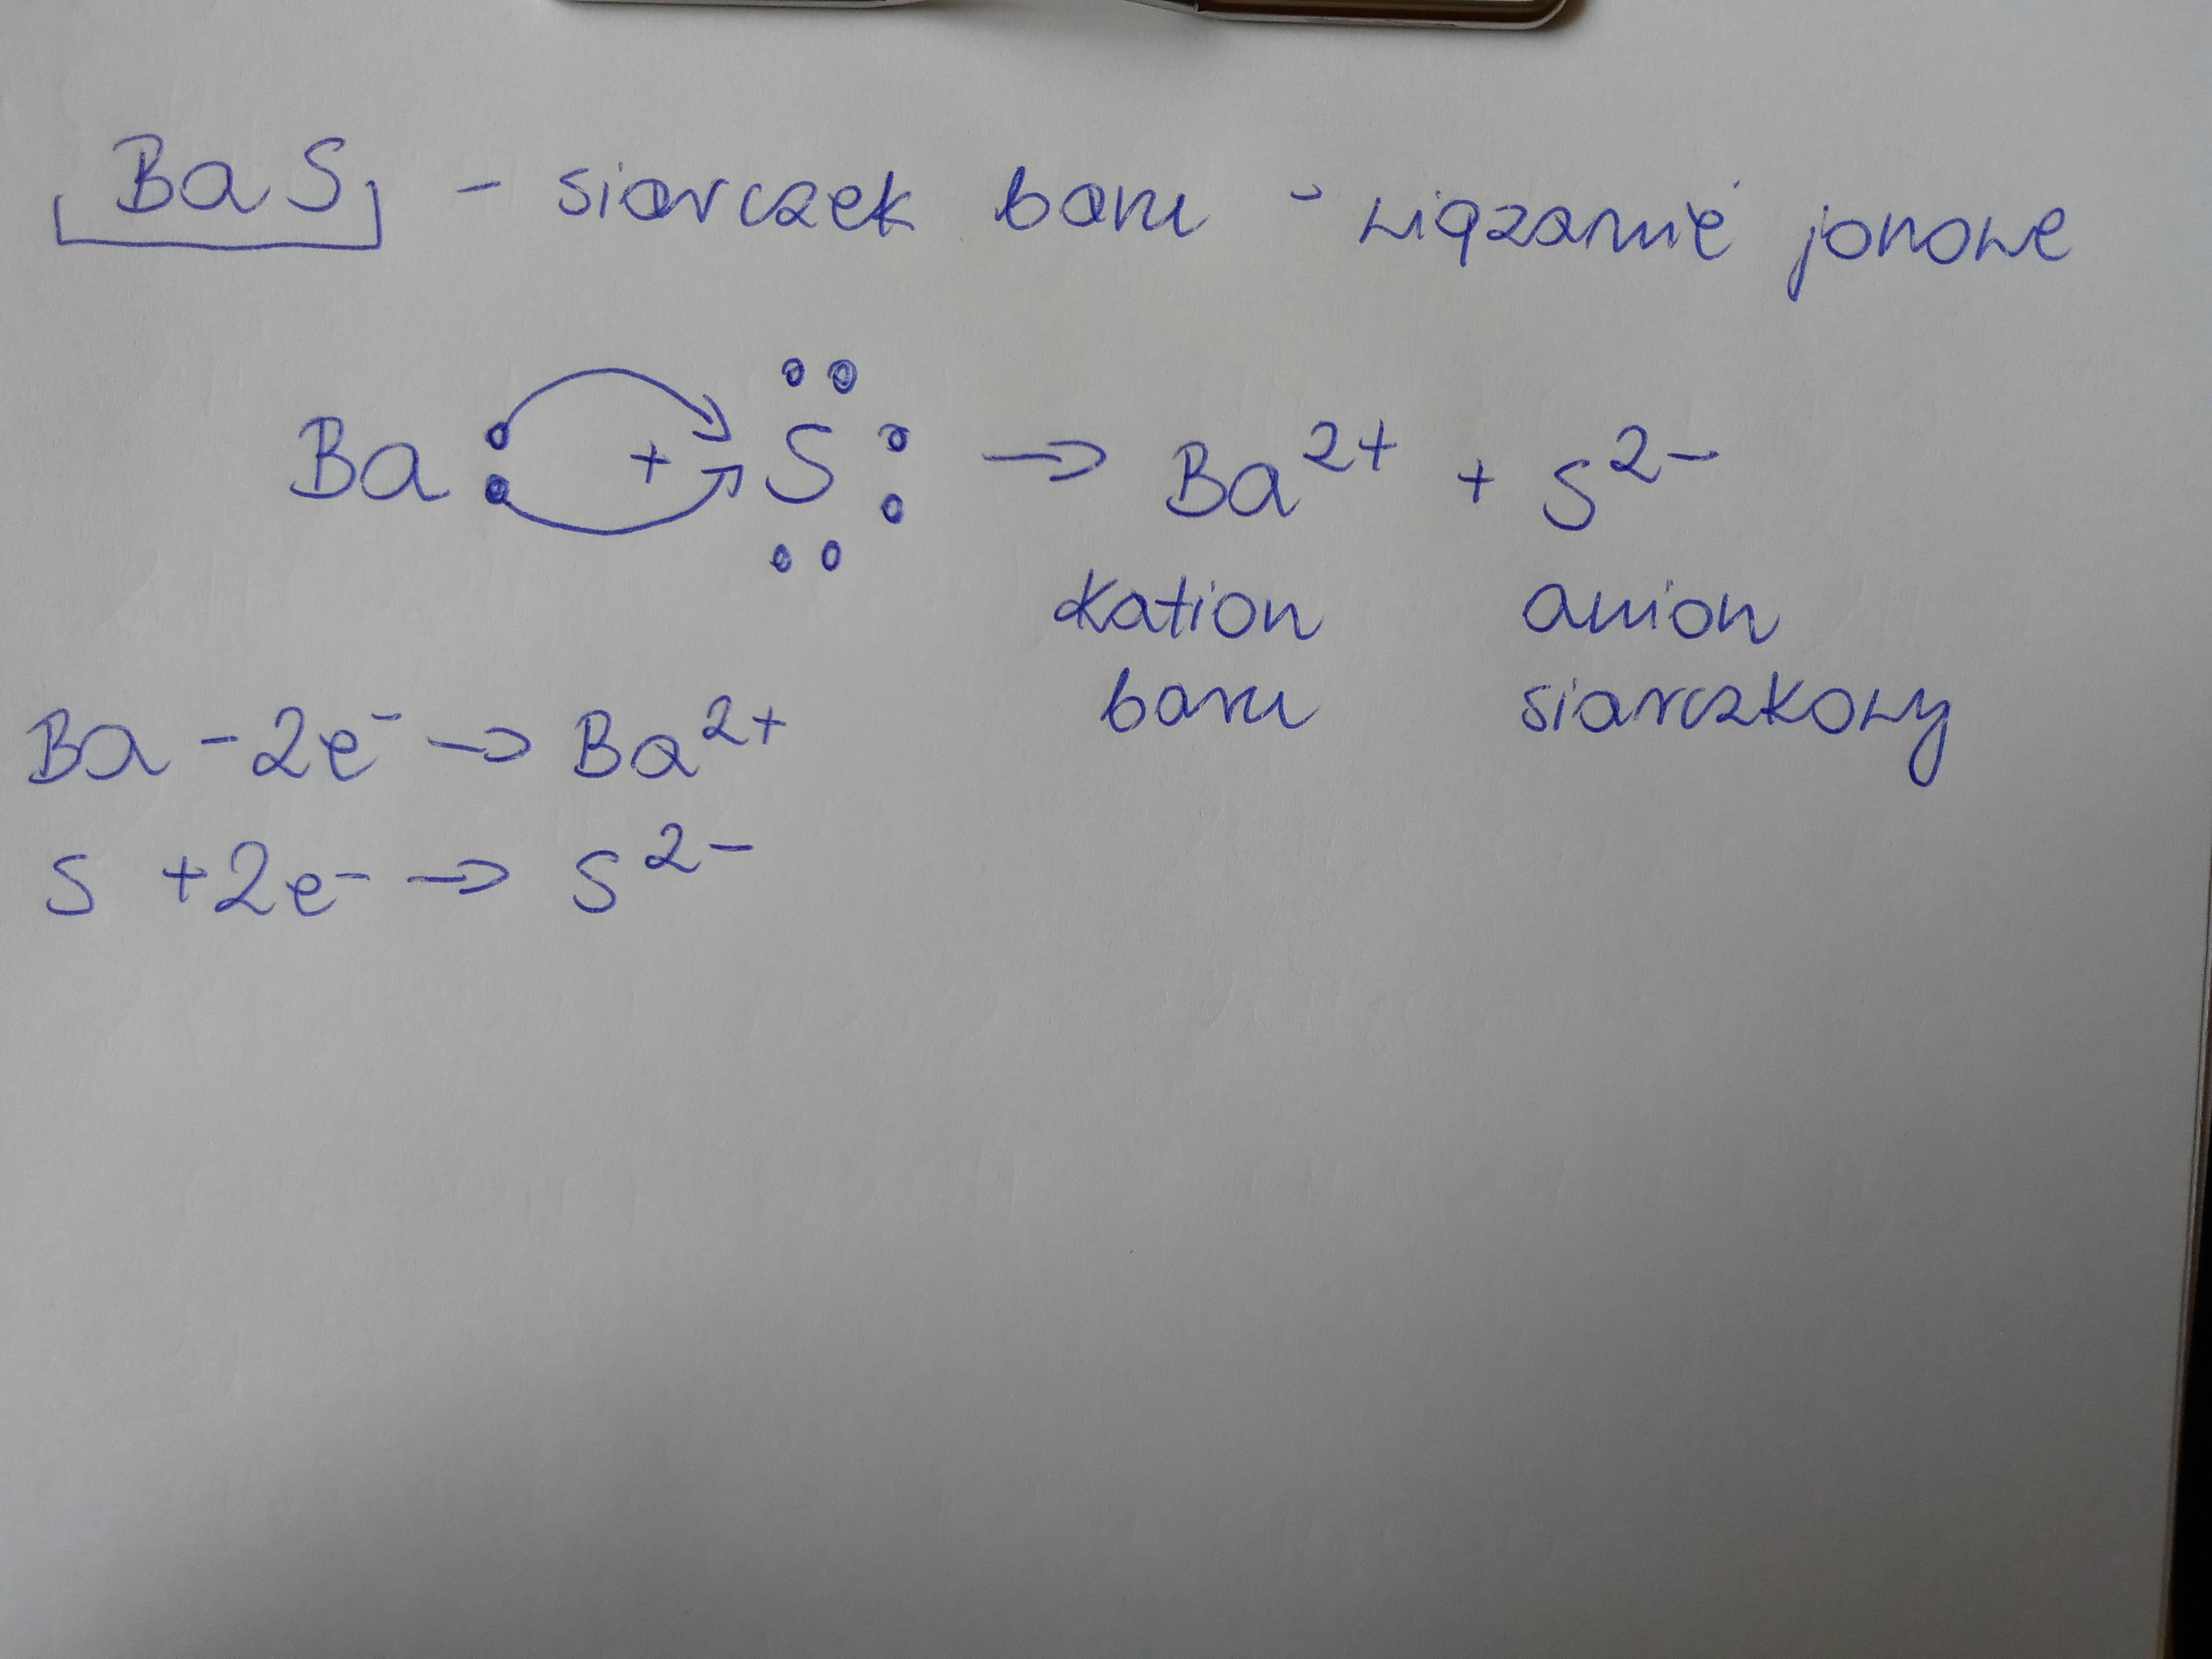 BaS - siarczek baru - wiązanie jonowe
Ba + S → Ba²⁺ + S²⁻
kation anion
baru siarczkowy
Ba - 2e⁻ → Ba²⁺
S + 2e⁻ → S²⁻